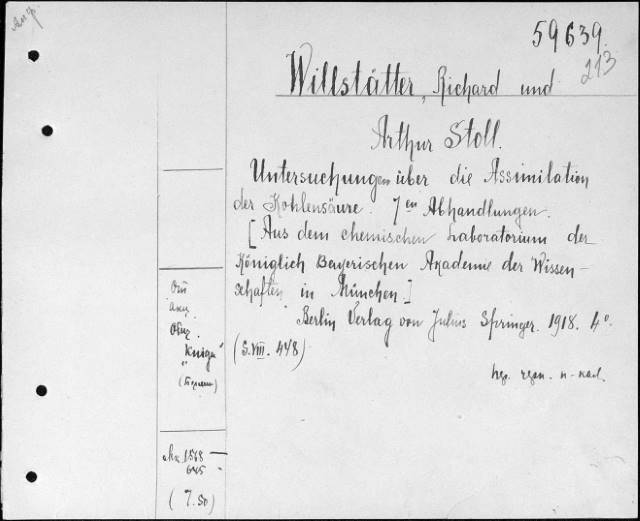 59639.
213
Willstätter, Richard und
Arthur Stoll.
Untersuchungen über die Assimilation
der Kohlensäure. 7en Abhandlungen.
[Aus dem chemischen Laboratorium der
Königlich Bayerischen Akademie der Wissen-
schaften in München]
Berlin Verlag von Julius Springer. 1918. 4°.
(S. VIII. 448)
Отд
акц.
Общ.
"Книга"
(Берлин)
1568
645
(7.50)